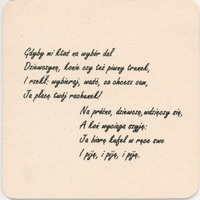 Gdyby mi ktoś na wybór dał
Dziewczynę, konie czy też piwny trunek,
I rzekł: wybieraj, waść, co chcesz sam,
Ja płacę twój rachunek!
Na próżno, dziewczę, wdzięczy się,
A koń wyciąga szyję:
Ja biorę kufel w ręce swe
I piję, i piję, i piję.